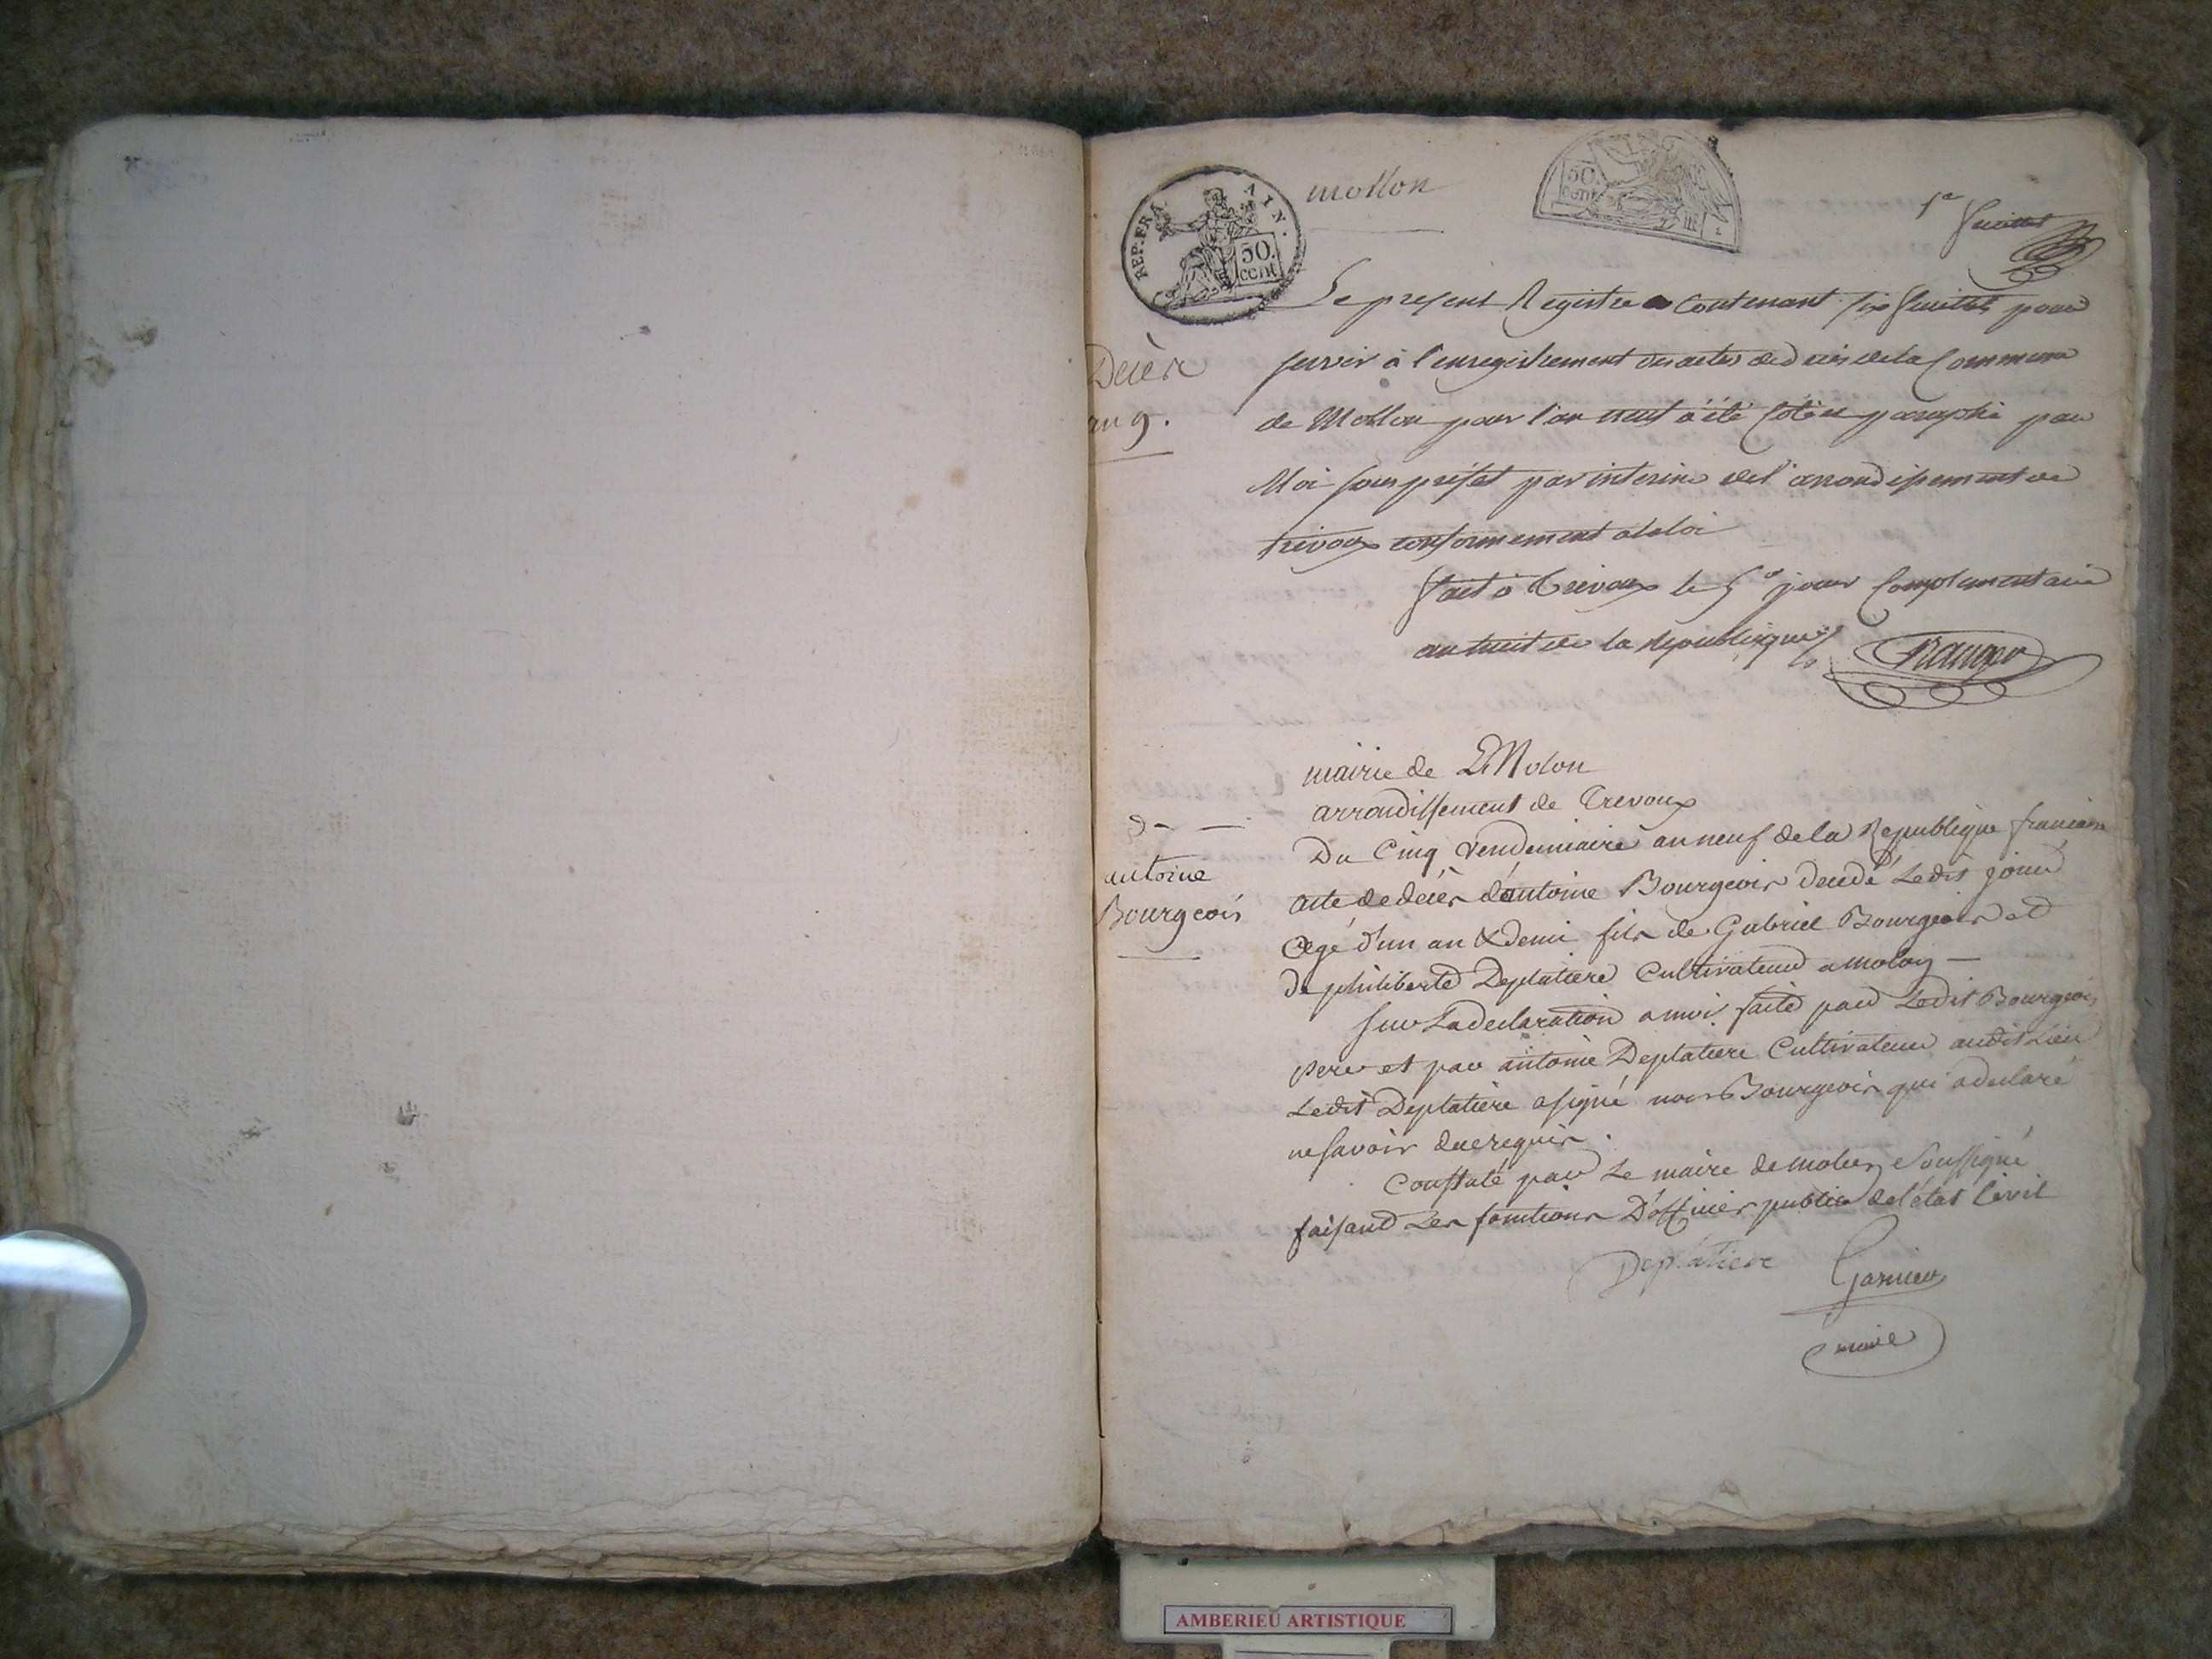 mollon
REP. FRA.
AIN.
50.
cent
50.
cent
1er feuillet
Décès
an 9.
Le present Registre Contenant six feuillets pour
servir à l'enregistrement des actes de décès de la Commune
de Mollon pour l'an neuf a été Côté et paraphé par
Moi sous préfet par interim de l'arrondissement de
trévoux conformement a la loi
fait à Trevoux le 5e jour Complementaire
an huit de la Republique
mairie de Molon
arrondissement de Trevoux
antoine
Bourgeois
Du Cinq Vendemiaire an neuf de la Republique francaise
acte de décès d'antoine Bourgeois decedé Ledit jour
Agé d'un an & demi fils de Gabriel Bourgeois et
De philiberte Deplatiere Cultivateur a molon —
sur La declaration a moi faite par Ledit Bourgeois
pere et par antoine Deplatiere Cultivateur audit Lieu
Ledit Deplatiere a signé non Bourgeois qui a declaré
ne savoir de ce requis.
Constaté par Le maire de molon Soussigné
faisant Les fonctions D'officier public de l'état Civil
Deplatiere Garnier
maire
AMBERIEU ARTISTIQUE